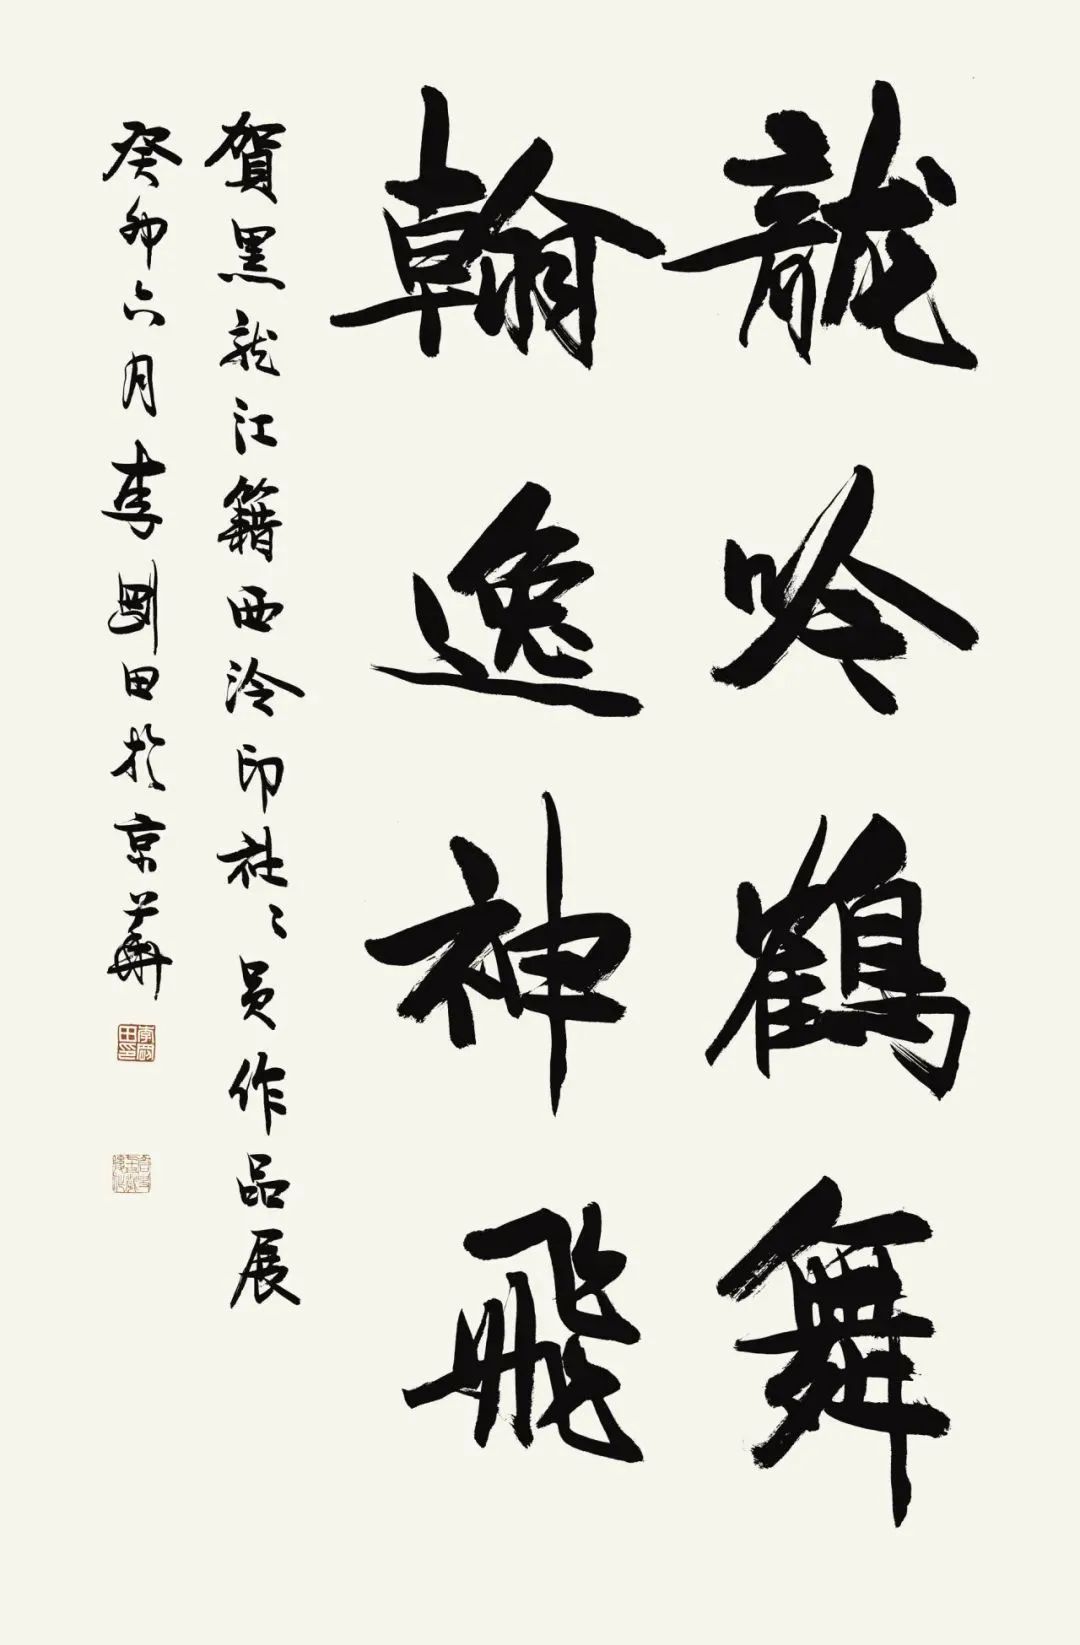 龍吟鶴舞
翰逸神飛
賀黑龍江籍西泠印社〻員作品展
癸卯六月李剛田於京華